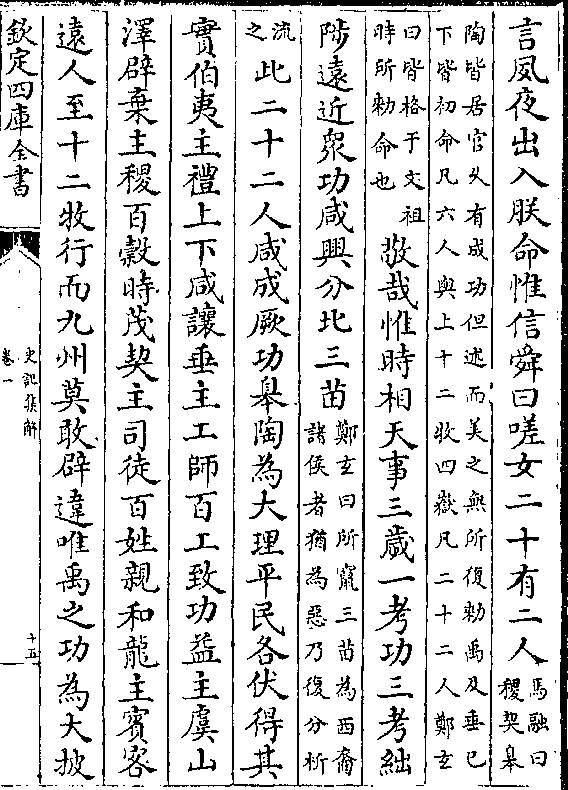 言夙夜出入朕命惟信舜曰嗟女二十有二人馬融曰稷契皋
陶皆居官久有成功但述而美之無所復勑禹及垂已下皆初命凡六人與上十二牧四嶽凡二十二人鄭玄
曰皆格于文祖時所勑命也敬哉惟時相天事三歲一考功三考絀
陟遠近衆功咸興分北三苗鄭玄曰所竄三苗為西裔諸侯者猶為惡乃復分析
流之此二十二人咸成厥功皋陶為大理平民各伏得其
實伯夷主禮上下咸讓垂主工師百工致功益主虞山
澤辟棄主稷百穀時茂契主司徒百姓親和龍主賓客
遠人至十二牧行而九州莫敢辟違唯禹之功為大披
欽定四庫全書
史記集解
卷一
十五